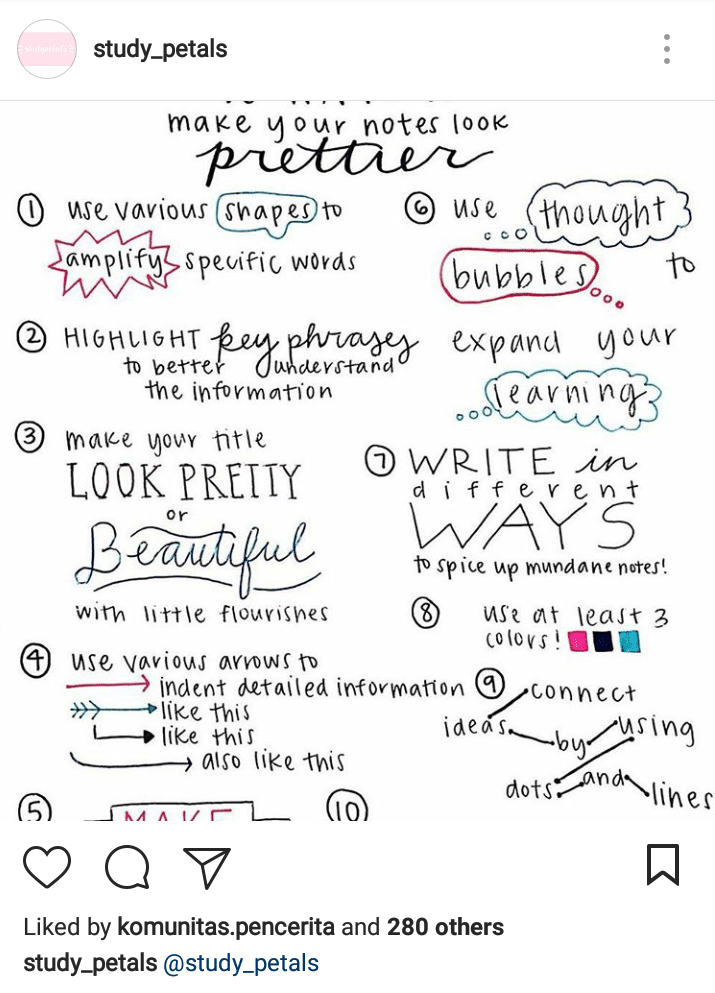 study_petals
make your notes look
prettier
① use various shapes to
amplify specific words
② HIGHLIGHT key phrases
to better understand
the information
③ make your title
LOOK PRETTY
or
Beautiful
with little flourishes
④ use various arrows to
indent detailed information
like this
like this
also like this
⑤ MAKE
⑥ use thought
bubbles to
expand your
learning
⑦ WRITE in
different
WAYS
to spice up mundane notes!
⑧ use at least 3
colors!
⑨ connect
ideas by using
dots and lines
⑩
Liked by komunitas.pencerita and 280 others
study_petals @study_petals